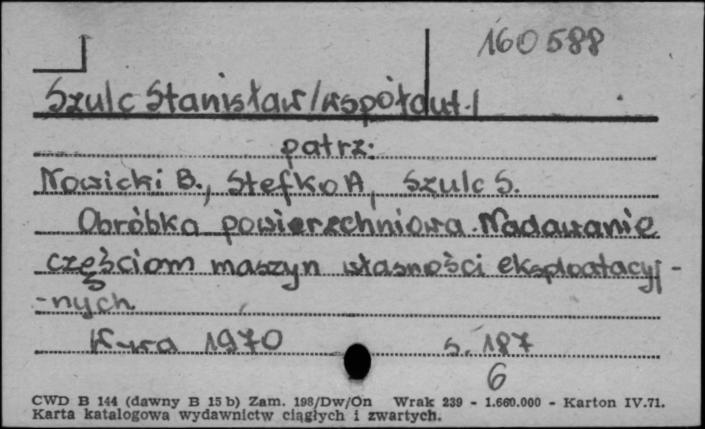 160588
Szulc Stanisław /współaut./
patrz:
Nowicki B., Stefko A, Szulc S.
Obróbka powierzchniowa. Nadawanie
częściom maszyn własności eksploatacyj-
-nych
W-wa 1970 s. 187
6
CWD B 144 (dawny B 15 b) Zam. 198/Dw/On Wrak 239 - 1.660.000 - Karton IV.71.
Karta katalogowa wydawnictw ciągłych i zwartych.